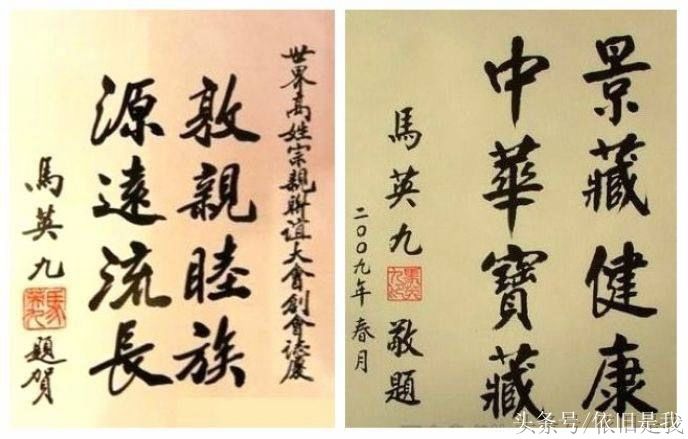 世界高姓宗親聯誼大會創會誌慶
敦親睦族
源遠流長
馬英九 題賀
景藏健康
中華寶藏
馬英九 敬題
二〇〇九年 春月
头条号/依旧是我